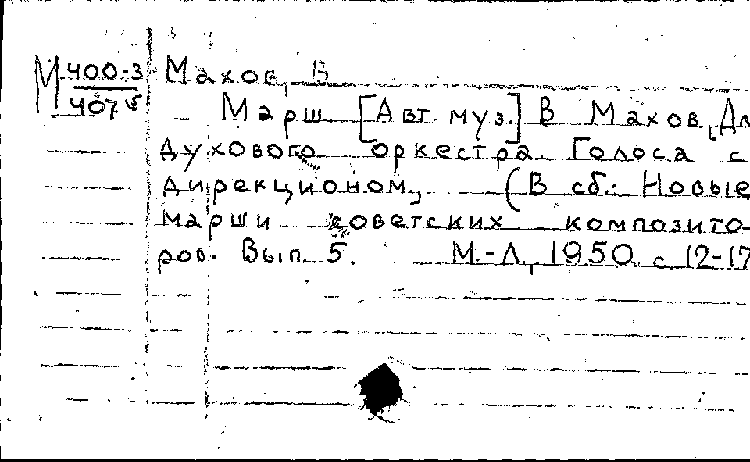 М 400-3 Махов, В
407 5 Марш [Авт муз.] В Махов, Дл
духового оркестра. Голоса с
дирекционом, (В сб.: Новые
марши советских композито-
ров. Вып. 5. М.-Л., 1950. с 12-17